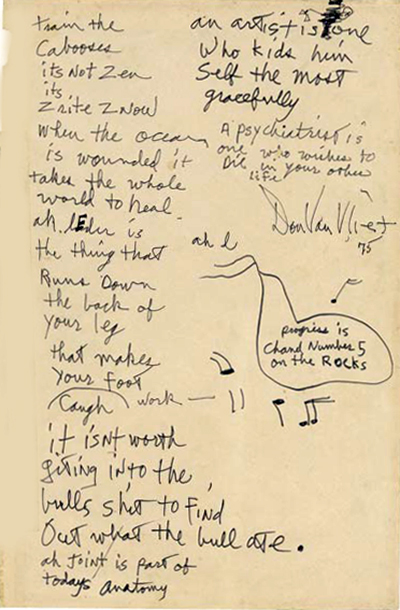 train the
Cabooses
its Not Zen
its
Zrite ZNow
when the ocean
is wounded it
takes the whole
world to heal.
ah LEdur is
the thing that
Runs Down
the back of
your leg
that makes
your foot
Caugh work —
it isnt worth
giting into the
bulls shit to find
Out what the bull ate.
ah Joint is part of
todays anatomy
an artist is one
Who kids him
Self the most
gracefully
A psychiatrist is
one who wishes to
Die in your other
life
Don Van Vliet
75
ah l
progress is
Chanel Number 5
on the ROCKS